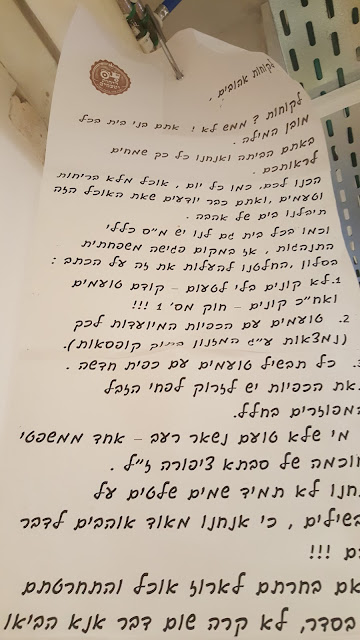 לקוחות אהובים ,
לקוחות ? ממש לא ! אתם בני בית בכל
מובן המילה .
באתם הביתה ואנחנו כל כך שמחים
לראותכם .
הכנו לכם, כמו כל יום , אוכל מלא בריחות
וטעמים ,ואתם כבר יודעים שאת האוכל הזה
תיבלנו בים של אהבה .
וכמו בכל בית גם לנו יש מ״ס כללי
התנהגות , אז במקום פגישה משפחתית
בסלון ,החלטנו להעלות את זה על הכתב :
1.לא קונים בלי לטעום – קודם טועמים
ואח״כ קונים – חוק מס' 1 !!!
2. טועמים עם הכפיות המיועדות לכך
(נמצאות ע״ג המזנון בתוך קופסאות).
3. כל תבשיל טועמים עם כפית חדשה .
את הכפיות יש לזרוק לפחי הזבל
המפוזרים בחלל.
מי שלא טועם נשאר רעב – אחד ממשפטי
חוכמה של סבתא ציפורה ז״ל .
אנחנו לא תמיד שמים שלטים על
בשילים , כי אנחנו מאוד אוהבים לדבר
!!!
אם בחרתם לארוז אוכל והתחרטתם
בסדר, לא קרה שום דבר אנא הביאו